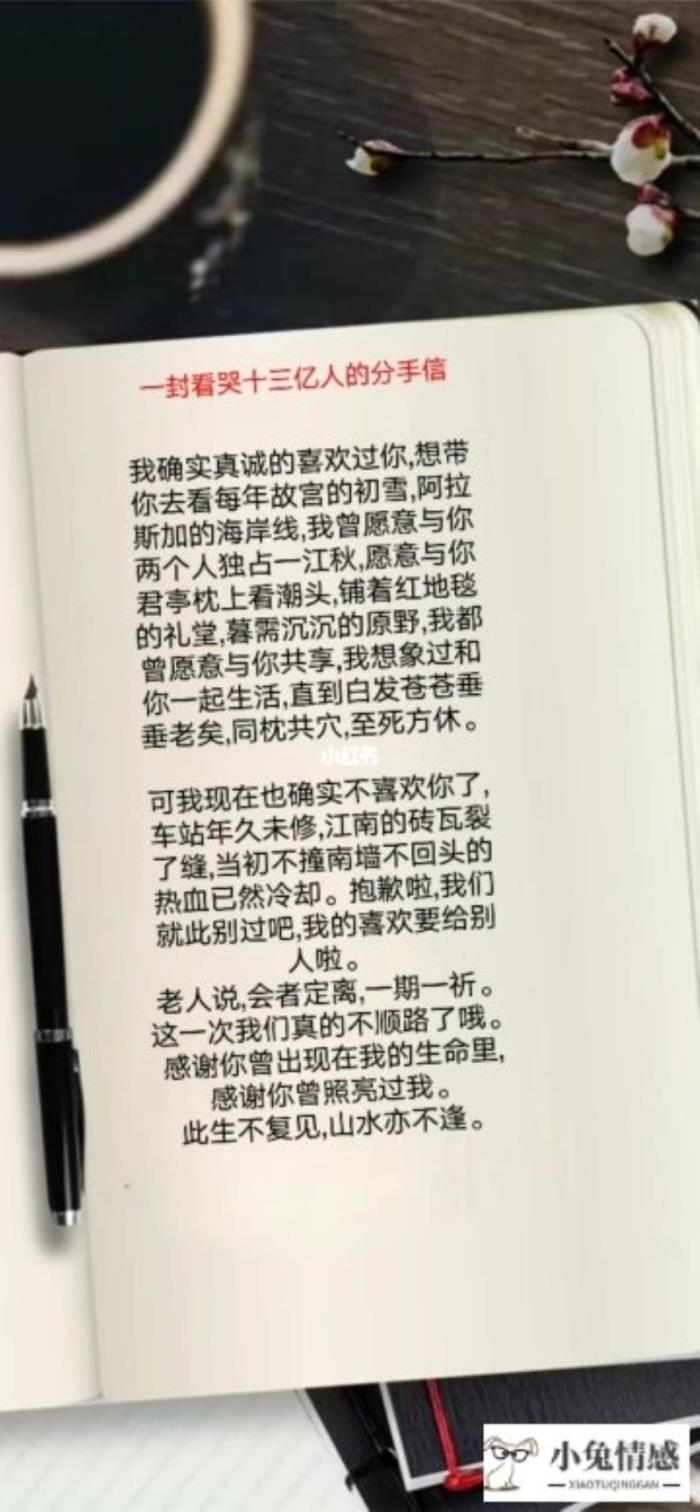 一封看哭十三亿人的分手信
我确实真诚的喜欢过你,想带
你去看每年故宫的初雪,阿拉
斯加的海岸线,我曾愿意与你
两个人独占一江秋,愿意与你
君亭枕上看潮头,铺着红地毯
的礼堂,暮需沉沉的原野,我都
曾愿意与你共享,我想象过和
你一起生活,直到白发苍苍垂
垂老矣,同枕共穴,至死方休。
小红书
可我现在也确实不喜欢你了,
车站年久未修,江南的砖瓦裂
了缝,当初不撞南墙不回头的
热血已然冷却。抱歉啦,我们
就此别过吧,我的喜欢要给别
人啦。
老人说,会者定离,一期一祈。
这一次我们真的不顺路了哦。
感谢你曾出现在我的生命里,
感谢你曾照亮过我。
此生不复见,山水亦不逢。
小兔情感
XIAOTUQINGGAN